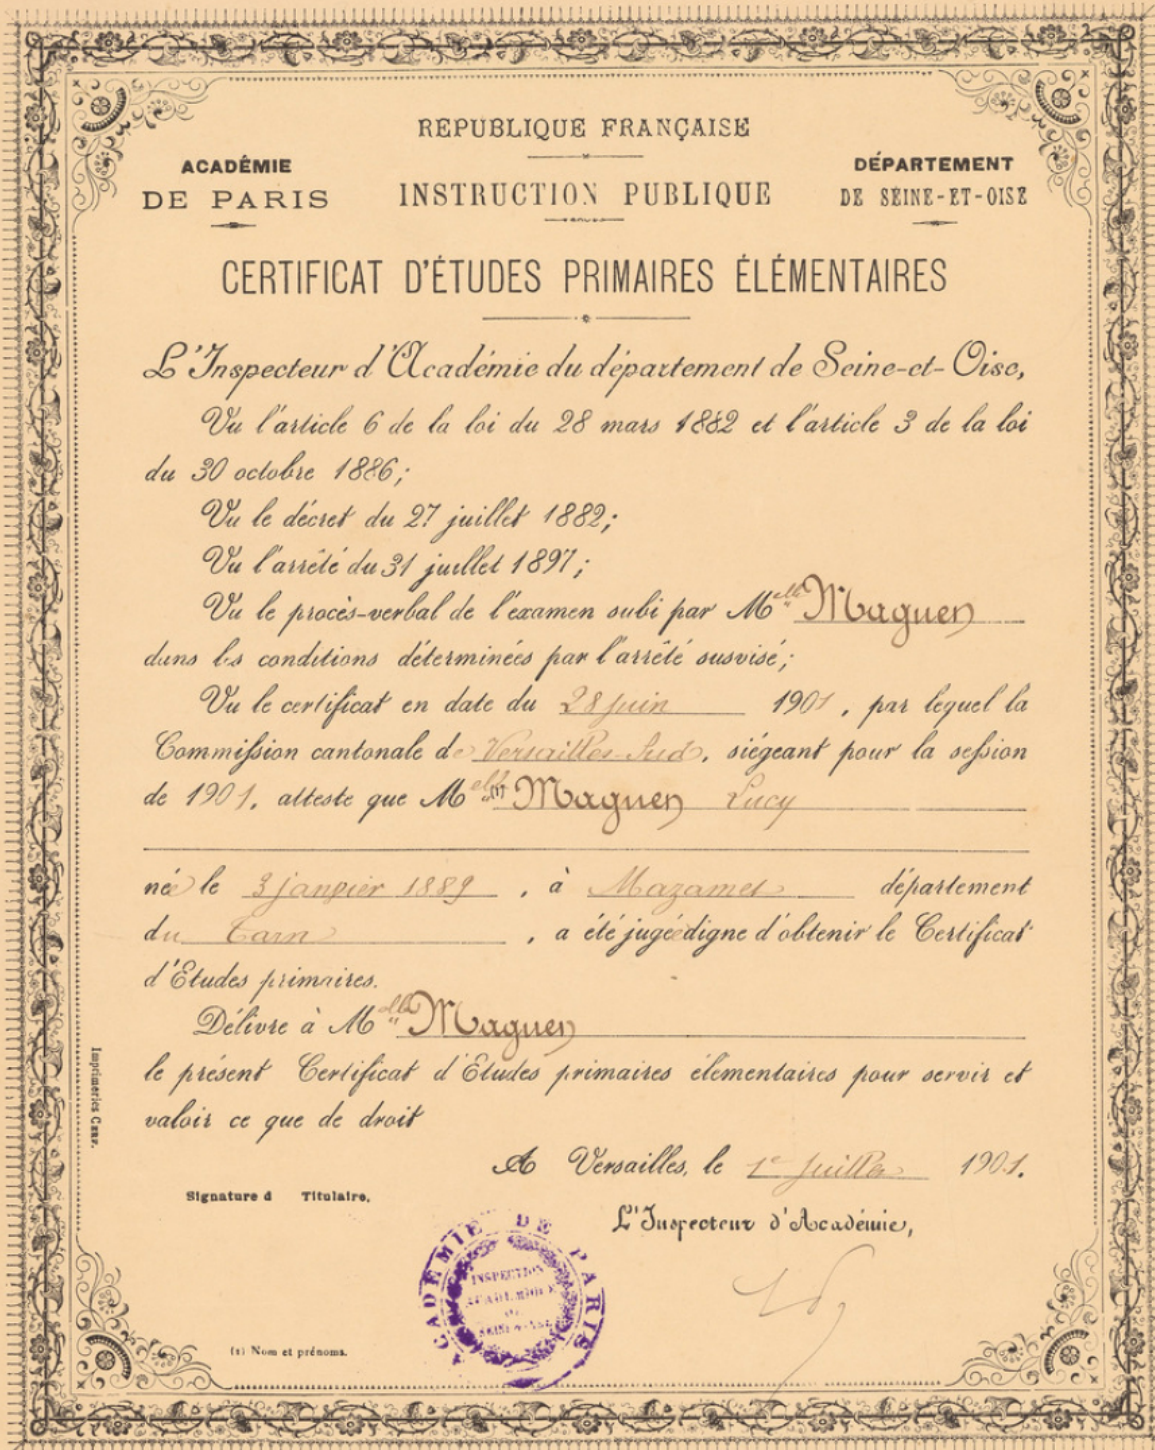 REPUBLIQUE FRANÇAISE
ACADÉMIE
DE PARIS
INSTRUCTION PUBLIQUE
DÉPARTEMENT
DE SEINE-ET-OISE
CERTIFICAT D'ÉTUDES PRIMAIRES ÉLÉMENTAIRES
L'Inspecteur d'Académie du département de Seine-et-Oise,
Vu l'article 6 de la loi du 28 mars 1882 et l'article 3 de la loi
du 30 octobre 1886;
Vu le décret du 27 juillet 1882;
Vu l'arrêté du 31 juillet 1897;
Vu le procès-verbal de l'examen subi par Melle Maguen
dans les conditions déterminées par l'arrêté susvisé;
Vu le certificat en date du 28 juin 1901, par lequel la
Commission cantonale de Versailles-Sud, siégeant pour la session
de 1901, atteste que Melle (1) Maguen Lucy
née le 3 janvier 1889, à Mazamet département
du Tarn, a été jugée digne d'obtenir le Certificat
d'Etudes primaires.
Délivré à Melle Maguen
le présent Certificat d'Etudes primaires élémentaires pour servir et
valoir ce que de droit
A Versailles, le 1er Juillet 1901.
Signature d Titulaire,
L'Inspecteur d'Académie,
ACADÉMIE DE PARIS
INSPECTION
ACADÉMIQUE
DE
SEINE-&-OISE
(1) Nom et prénoms.
Imprimeries CERF.